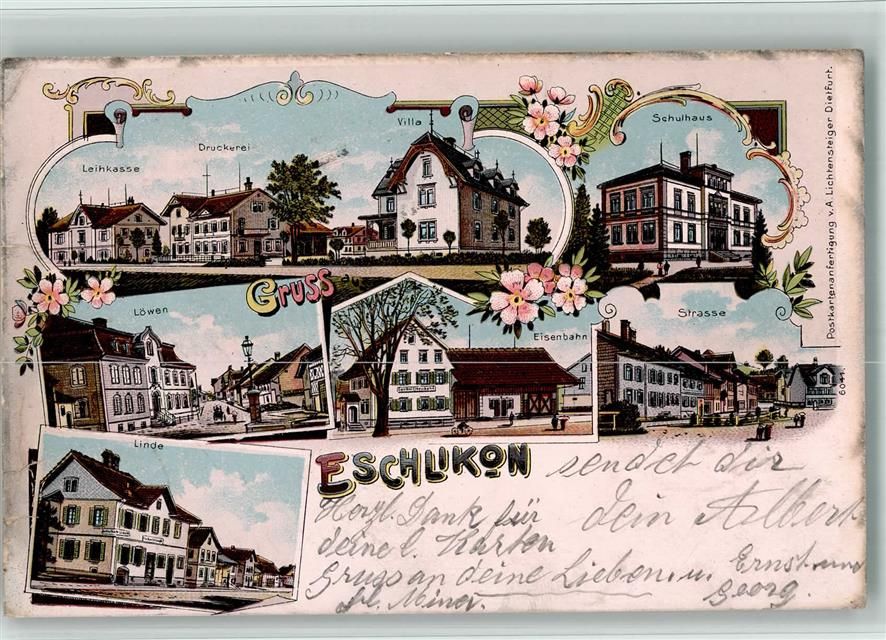 Leihkasse
Druckerei
Villa
Schulhaus
Postkartenanfertigung v. A. Lichtensteiger Dietfurt.
6041.
Gruss
Löwen
Eisenbahn
Strasse
Linde
ESCHLIKON
sendet dir
dein Albert
Herzl. Dank für
deine l. Karten
Gruss an deine Lieben. u. Ernst und
Georg.